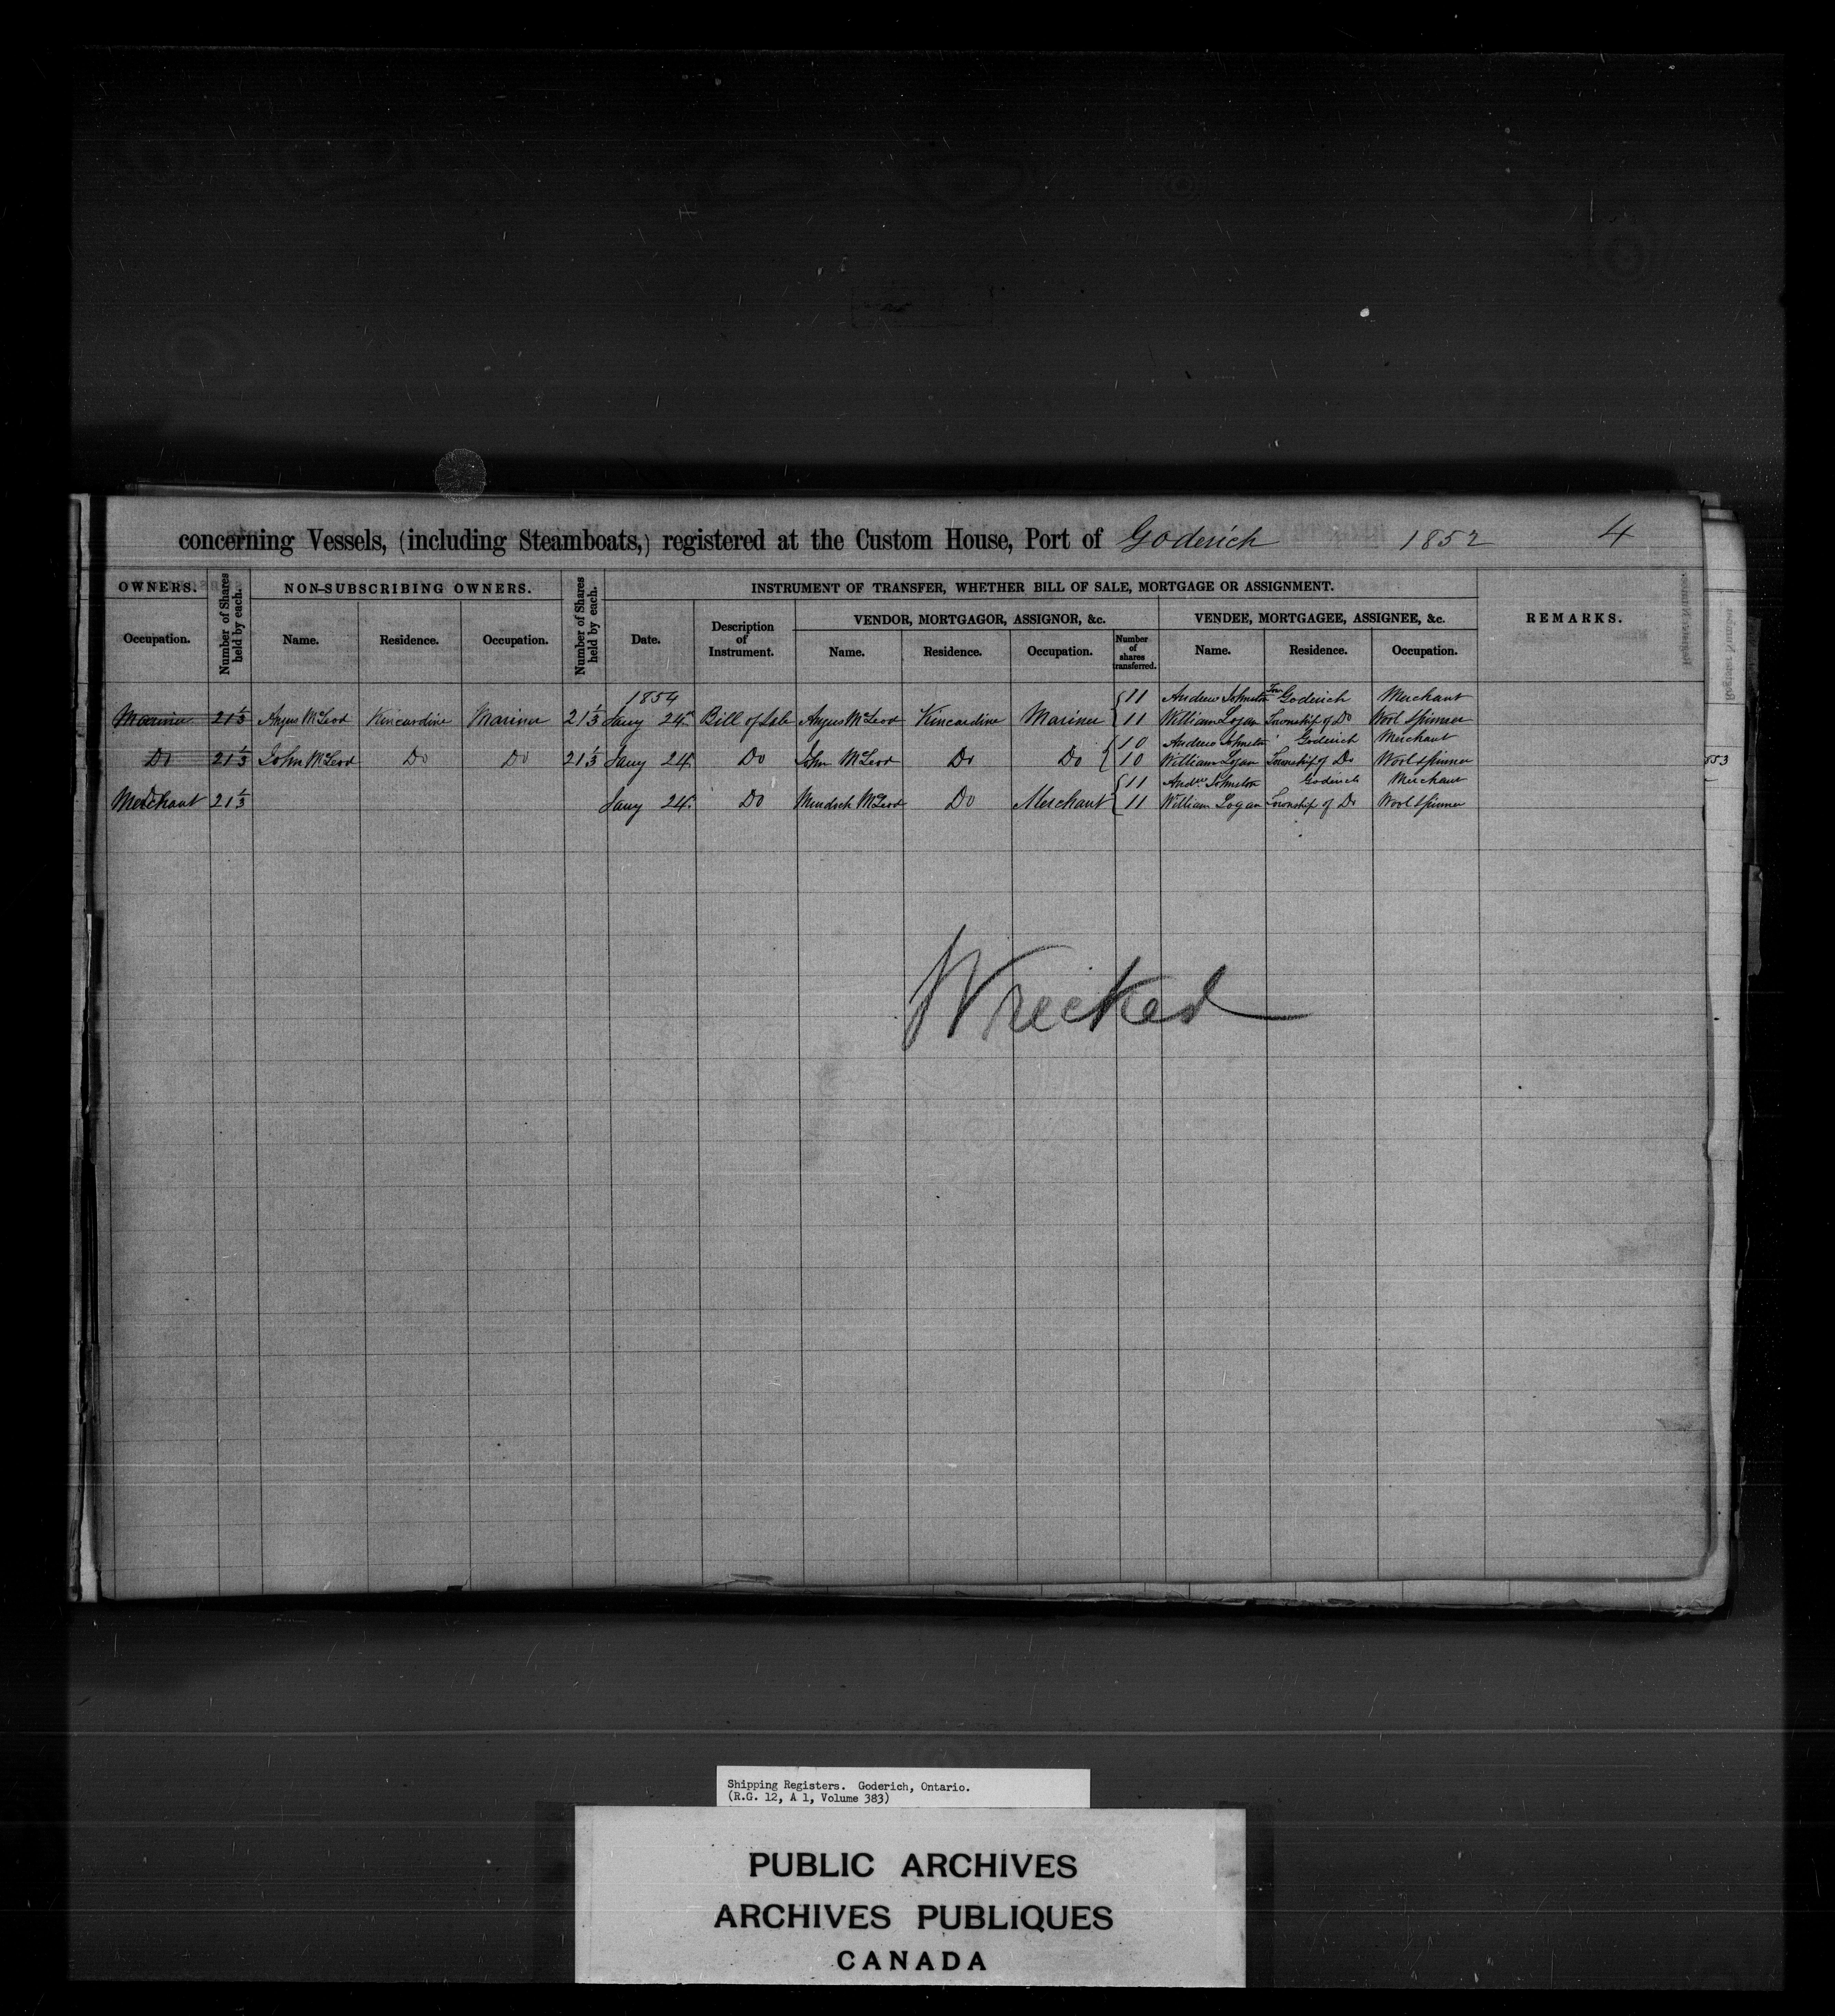 concerning Vessels, (including Steamboats,) registered at the Custom House, Port of Goderich 1852 4
OWNERS. Number of Shares held by each. NON-SUBSCRIBING OWNERS. Number of Shares held by each. INSTRUMENT OF TRANSFER, WHETHER BILL OF SALE, MORTGAGE OR ASSIGNMENT. REMARKS.
VENDOR, MORTGAGOR, ASSIGNOR, &c. VENDEE, MORTGAGEE, ASSIGNEE, &c.
Occupation. Name. Residence. Occupation. Date. Description of Instrument. Name. Residence. Occupation. Number of shares transferred. Name. Residence. Occupation.
1854 11 Andrew Johnston Goderich Merchant
Mariner 21 1/3 Angus McLeod Kincardine Mariner 21 1/3 Jany 24. Bill of Sale Angus McLeod Kincardine Mariner 11 William Logan Township of Do Wool Spinner
10 Andrew Johnston Goderich Merchant
Do 21 1/3 John McLeod Do Do 21 1/3 Jany 24 Do John McLeod Do Do 10 William Logan Township of Do Wool Spinner
11 Andw Johnston Goderich Merchant
Merchant 21 1/3 Jany 24. Do Murdoch McLeod Do Merchant 11 William Logan Township of Do Wool Spinner
Wrecked
553
Register Number
Shipping Registers. Goderich, Ontario.
(R.G. 12, A 1, Volume 383)
PUBLIC ARCHIVES
ARCHIVES PUBLIQUES
CANADA